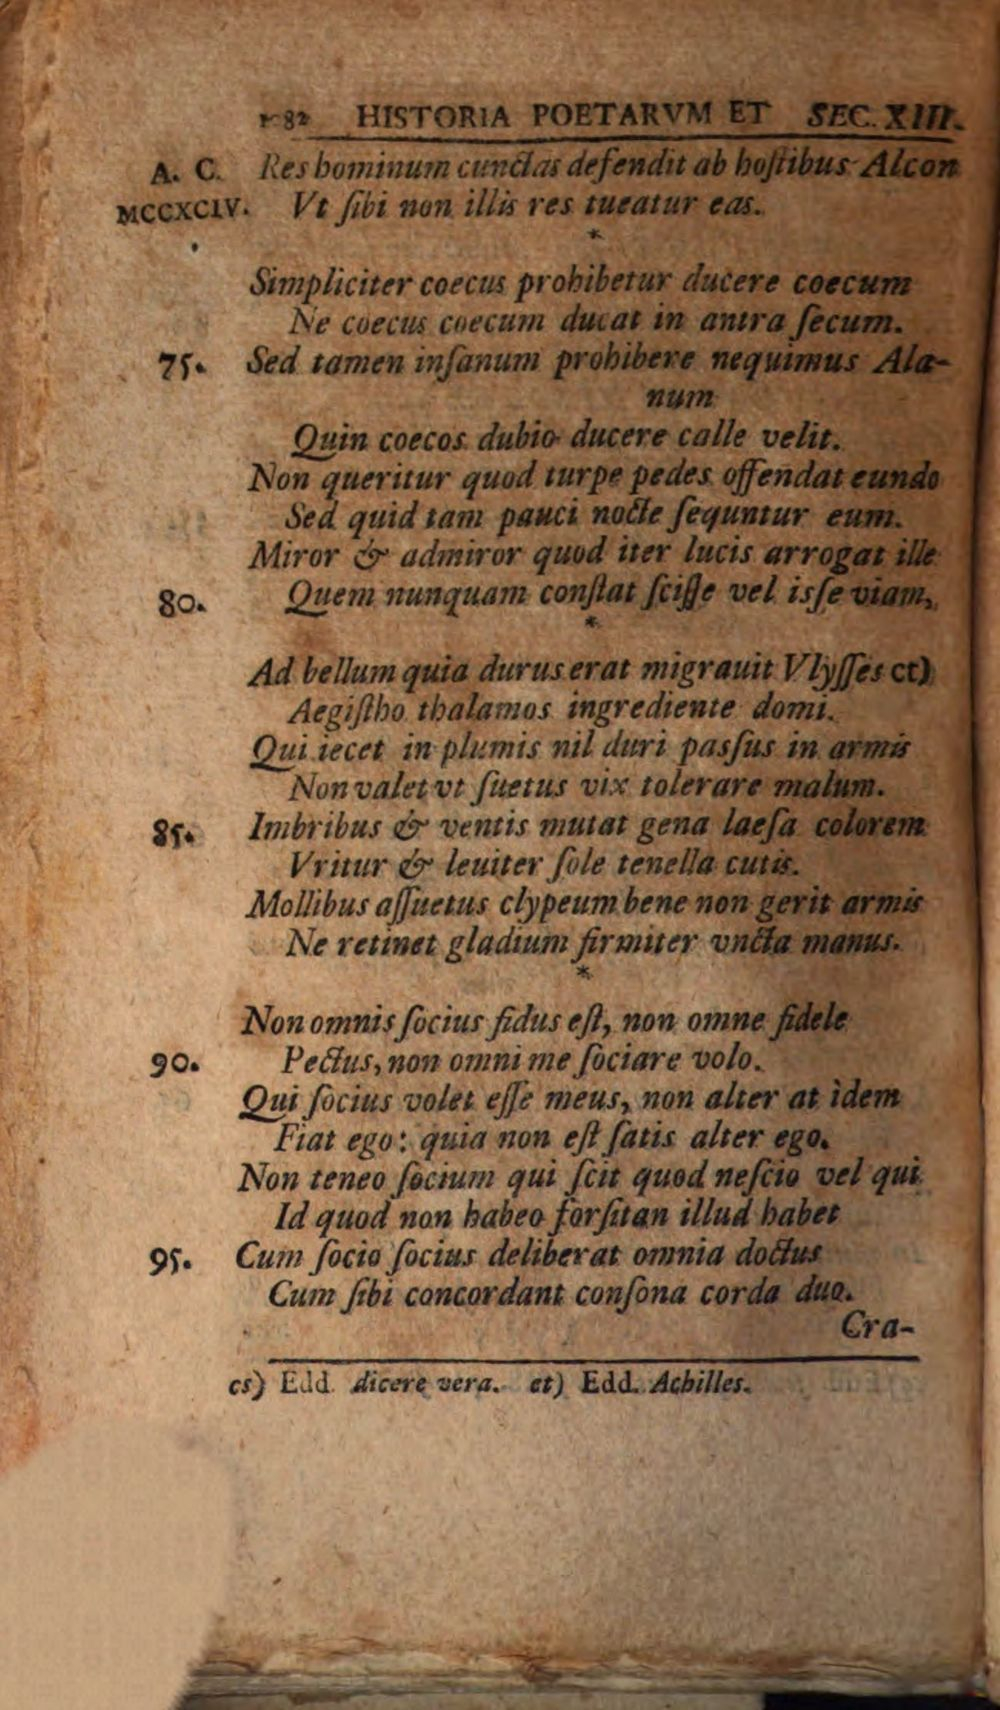 1182 HISTORIA POETARVM ET SEC. XIII.
A. C. Res hominum cunctas defendit ab hoſtibus Alcon
MCCXCIV. Vt ſibi non illis res tueatur eas.
*
Simpliciter coecus prohibetur ducere coecum
Ne coecus coecum ducat in antra ſecum.
75. Sed tamen inſanum prohibere nequimus Ala-
num
Quin coecos dubio ducere calle velit.
Non queritur quod turpe pedes offendat eundo
Sed quid tam pauci nocte ſequntur eum.
Miror & admiror quod iter lucis arrogat ille
80. Quem nunquam conſtat ſciſſe vel isſe viam,
*
Ad bellum quia durus erat migrauit Vlyſſes ct)
Aegiſtho thalamos ingrediente domi.
Qui iecet in plumis nil duri pasſus in armis
Non valet vt ſuetus vix tolerare malum.
85. Imbribus & ventis mutat gena laeſa colorem
Vritur & leuiter ſole tenella cutis.
Mollibus aſſuetus clypeum bene non gerit armis
Ne retinet gladium firmiter vncta manus.
*
Non omnis ſocius fidus eſt, non omne fidele
90. Pectus, non omni me ſociare volo.
Qui ſocius volet eſſe meus, non alter at idem
Fiat ego: quia non eſt ſatis alter ego.
Non teneo ſocium qui ſcit quod neſcio vel qui
Id quod non habeo forſitan illud habet
95. Cum ſocio ſocius deliberat omnia doctus
Cum ſibi concordant conſona corda duo.
Cra-
cs) Edd. dicere vera. ct) Edd. Achilles.